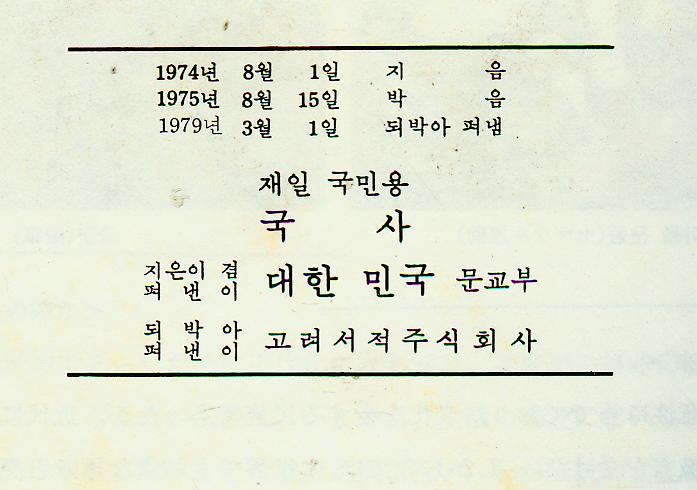 1974년 8월 1일 지음
1975년 8월 15일 박음
1979년 3월 1일 되박아 펴냄
재일 국민용
국사
지은이 겸
펴낸이
대한 민국 문교부
되박아
펴낸이
고려서적주식회사